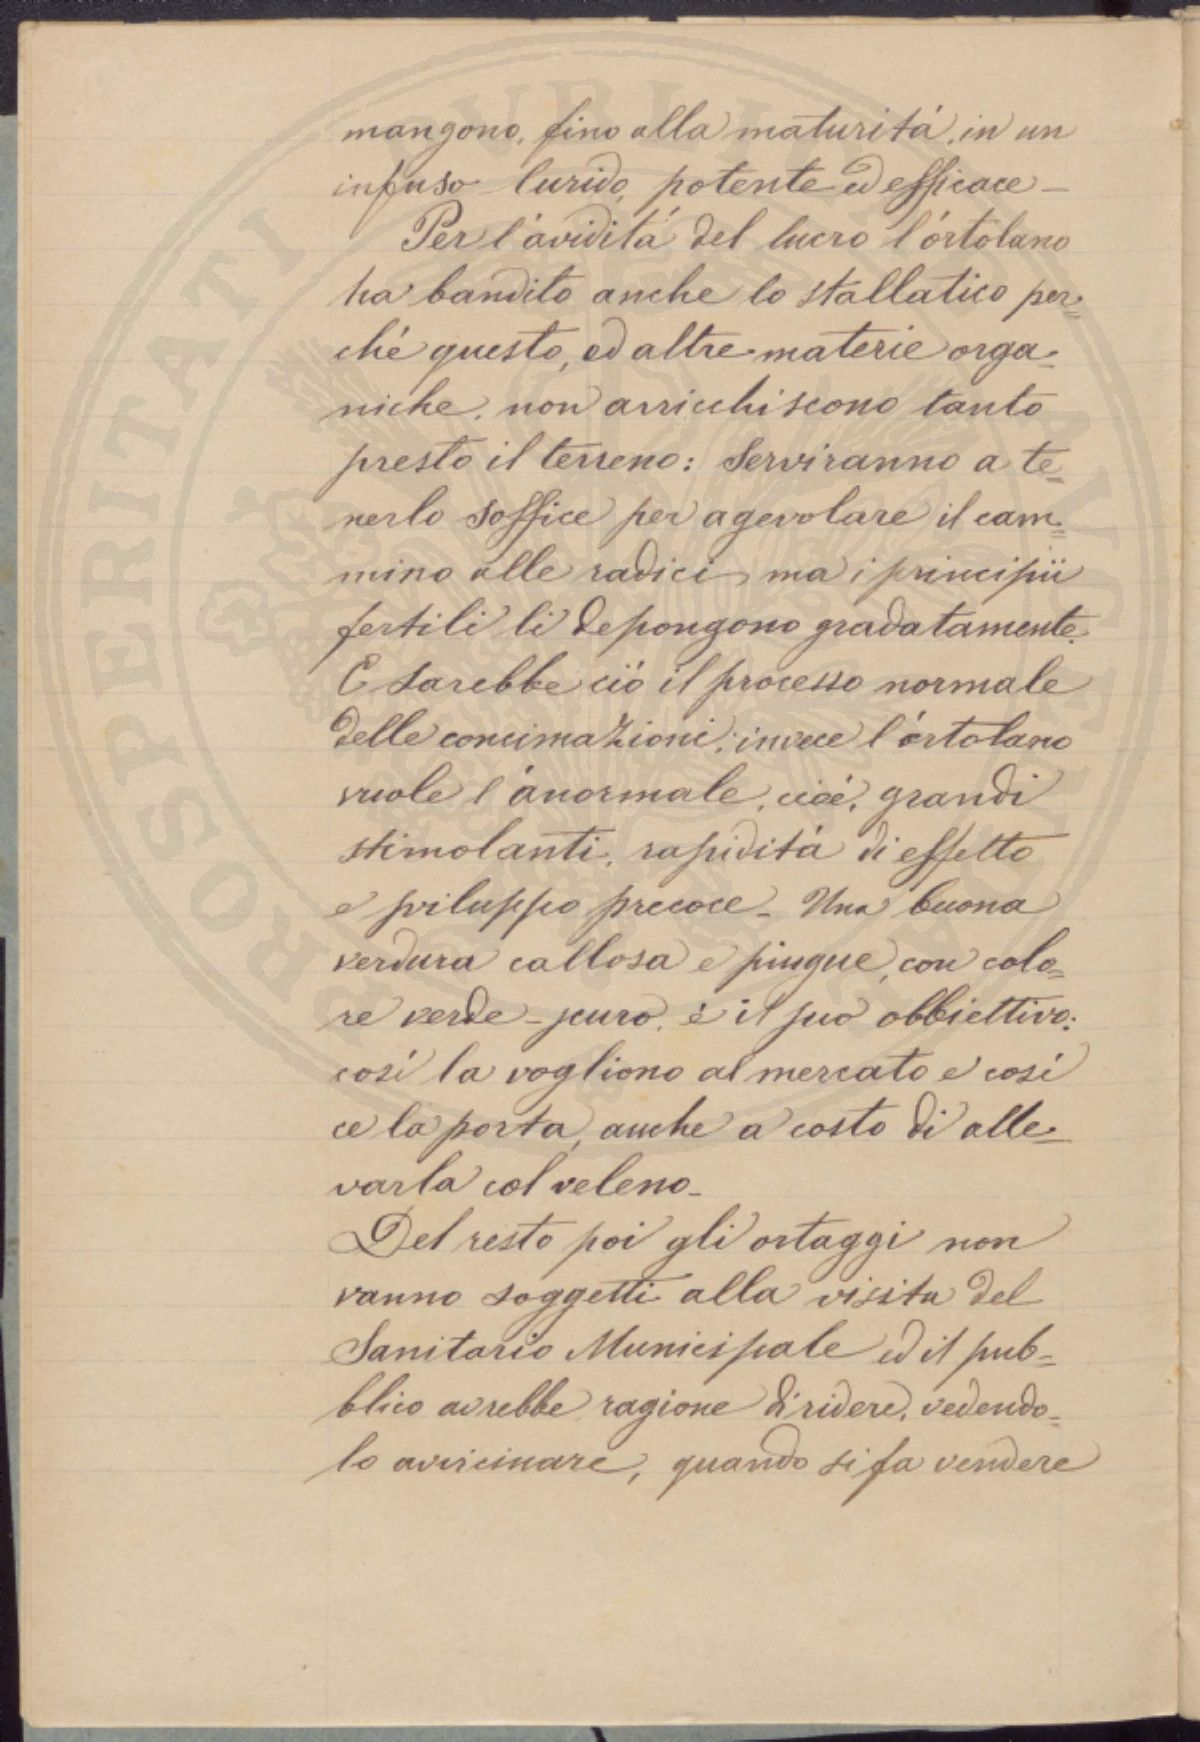 mangono, fino alla maturitá, in un
infuso lurido, potente ed efficace -
Per l'aviditá del lucro l'ortolano
ha bandito anche lo stallatico per=
ché questo, ed altre materie orga=
niche, non arricchiscono tanto
presto il terreno: Serviranno a te=
nerlo soffice per agevolare il cam=
mino alle radici, ma i principii
fertili li depongono gradatamente.
E sarebbe ció il processo normale
delle concimazioni; invece l'ortolano
vuole l'anormale, cioé, grandi
stimolanti, rapiditá di effetto
e sviluppo precoce - Una buona
verdura callosa e pingue, con colo=
re verde-scuro, è il suo obbiettivo:
cosí la vogliono al mercato e cosí
ce la porta, anche a costo di alle=
varla col veleno -
Del resto poi gli ortaggi non
vanno soggetti alla visita del
Sanitario Municipale ed il pub=
blico avrebbe ragione di ridere, vedendo=
lo avvicinare, quando si fa vendere
PROSPERITATI